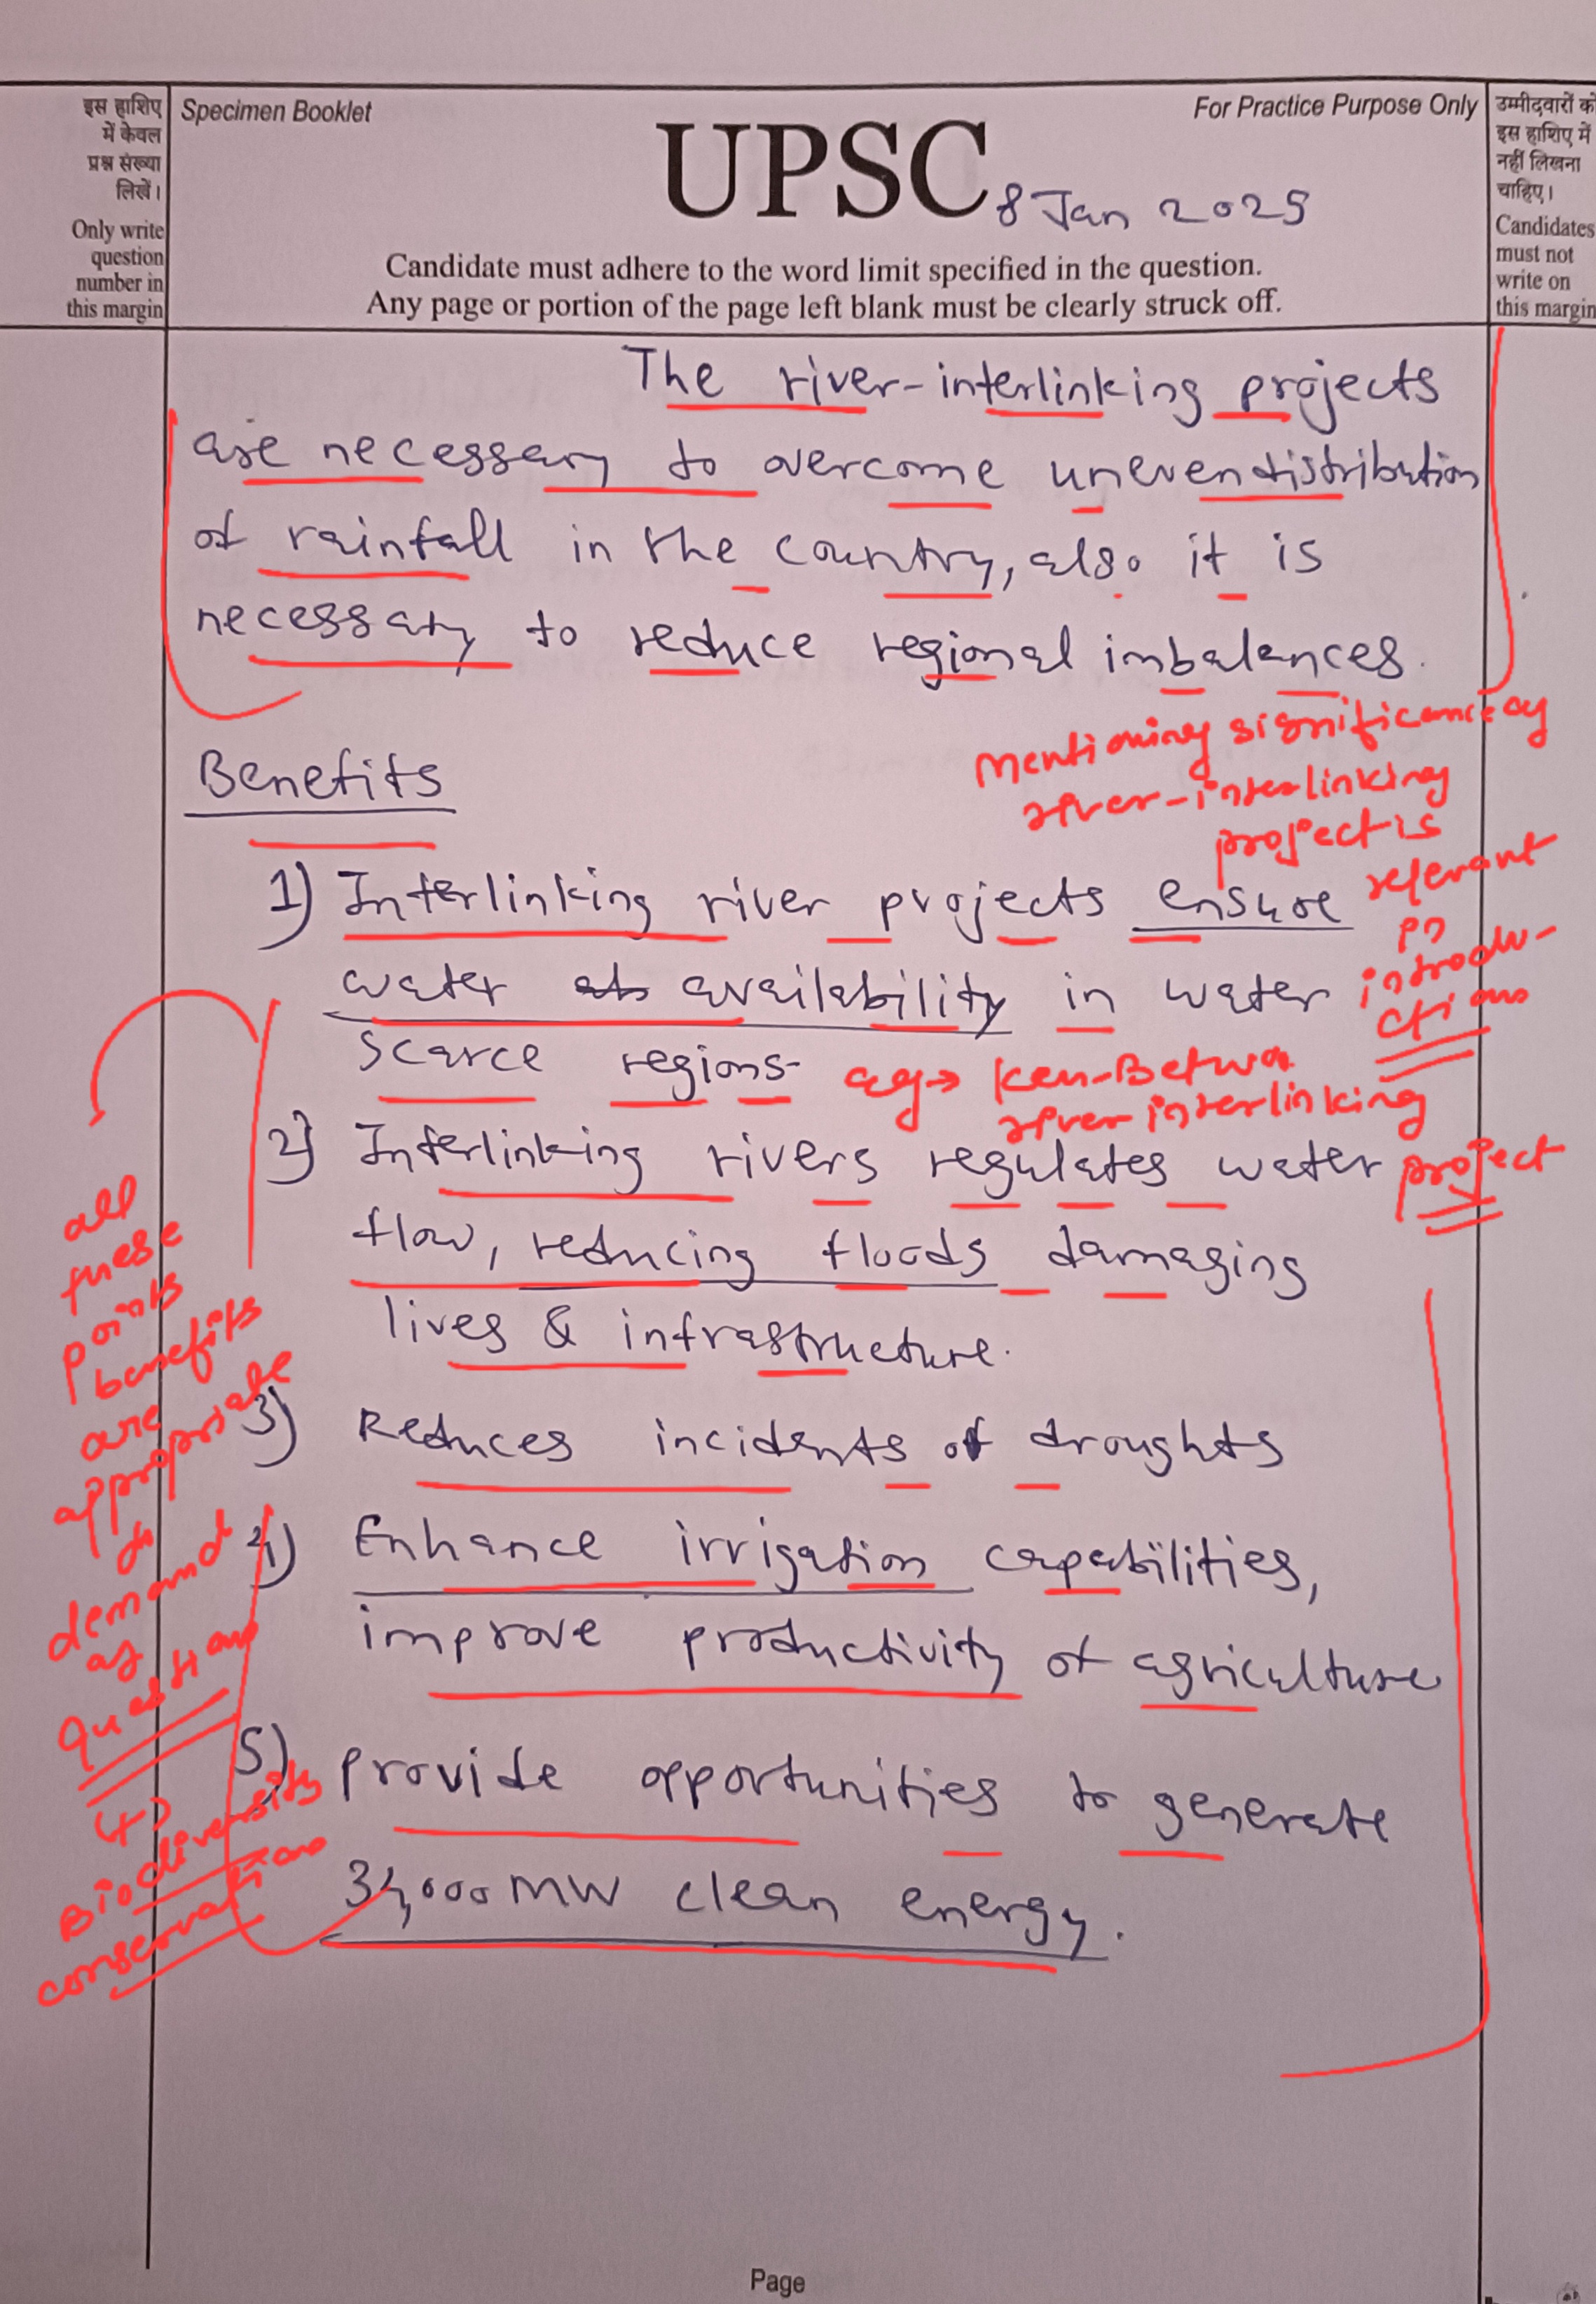 इस हाशिए
में केवल
प्रश्न संख्या
लिखें।
Only write
question
number in
this margin
Specimen Booklet
For Practice Purpose Only
UPSC
8 Jan 2025
Candidate must adhere to the word limit specified in the question.
Any page or portion of the page left blank must be clearly struck off.
उम्मीदवारों को
इस हाशिए में
नहीं लिखना
चाहिए।
Candidates
must not
write on
this margin
The river-interlinking projects
are necessary to overcome uneven distribution
of rainfall in the country, also it is
necessary to reduce regional imbalances.
Mentioning significance of
river-interlinking
project is
relevant
in
introdu-
ction
Benefits
1) Interlinking river projects ensure
water availability in water
scarce regions
eg → Ken-Betwa
river interlinking
project
2) Interlinking rivers regulates water
flow, reducing floods damaging
lives & infrastructure.
3) Reduces incidents of droughts
4) Enhance irrigation capabilities,
improve productivity of agriculture
5) provide opportunities to generate
34,000 MW clean energy.
all
these
points
benefits
are
appropriate
to
demand
of
question
Biodiversity
conservation
Page